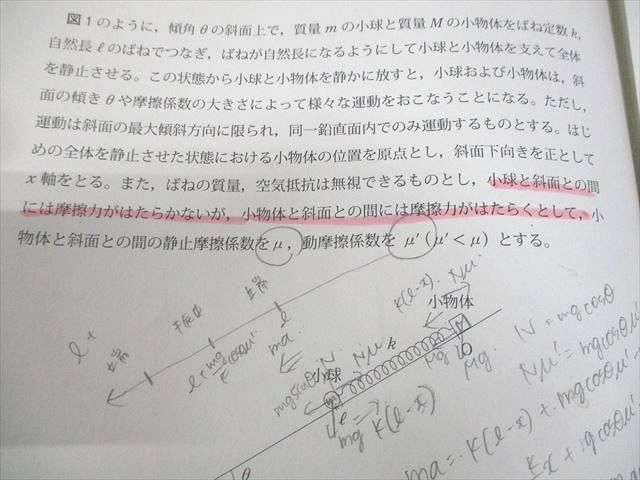 図1のように，傾角θの斜面上で，質量mの小球と質量Mの小物体をばね定数k，
自然長ℓのばねでつなぎ，ばねが自然長になるようにして小球と小物体を支えて全体
を静止させる。この状態から小球と小物体を静かに放すと，小球および小物体は，斜
面の傾きθや摩擦係数の大きさによって様々な運動をおこなうことになる。ただし，
運動は斜面の最大傾斜方向に限られ，同一鉛直面内でのみ運動するものとする。はじ
めの全体を静止させた状態における小物体の位置を原点とし，斜面下向きを正として
x軸をとる。また，ばねの質量，空気抵抗は無視できるものとし，小球と斜面との間
には摩擦力がはたらかないが，小物体と斜面との間には摩擦力がはたらくとして，小
物体と斜面との間の静止摩擦係数をμ，動摩擦係数をμ′(μ′<μ)とする。
K(ℓ-x). Nμ'
小物体
ℓ
ma.
k
Mg
O
Mg.
N = mgcosθ
Nμ' = mgcosθμ
小球
N
Nμ
mgsinθ
ℓ
mg
K(ℓ-x)
ma = K(ℓ-x) + mgcosθμ'
θ